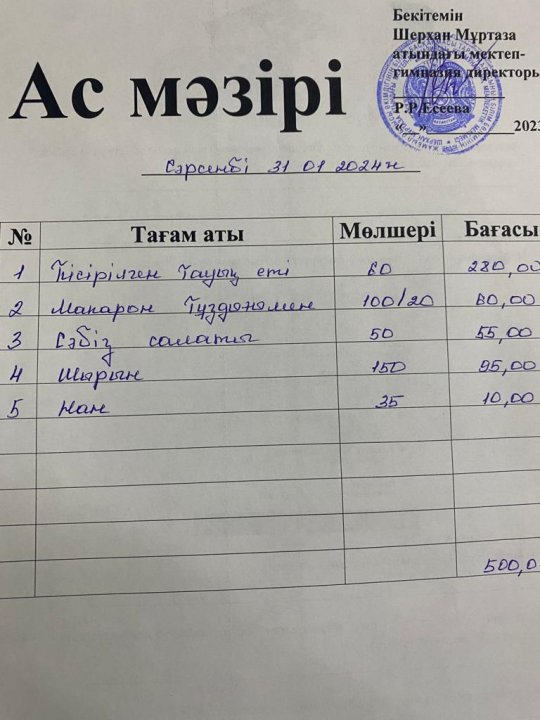 Бекітемін
Шерхан Мұртаза
атындағы мектеп-
гимназия директоры
Р.Р.Есеева
« » 2023
Ас мәзірі
Сәрсенбі 31 01 2024ж
№ Тағам аты Мөлшері Бағасы
1 Пісірілген Тауық еті 60 280,00
2 Макарон Тұздықпен 100/20 60,00
3 Сәбіз салаты 50 55,00
4 Шырын 150 95,00
5 Нан 35 10,00
500,0